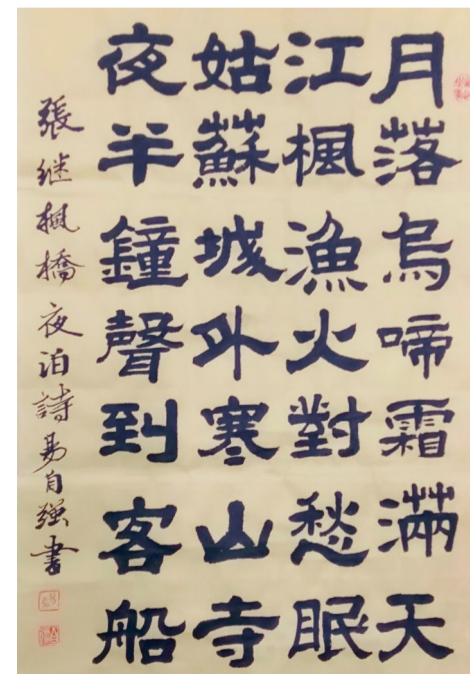 月落烏啼霜滿天
江楓漁火對愁眠
姑蘇城外寒山寺
夜半鐘聲到客船
張继楓橋夜泊詩易自强書